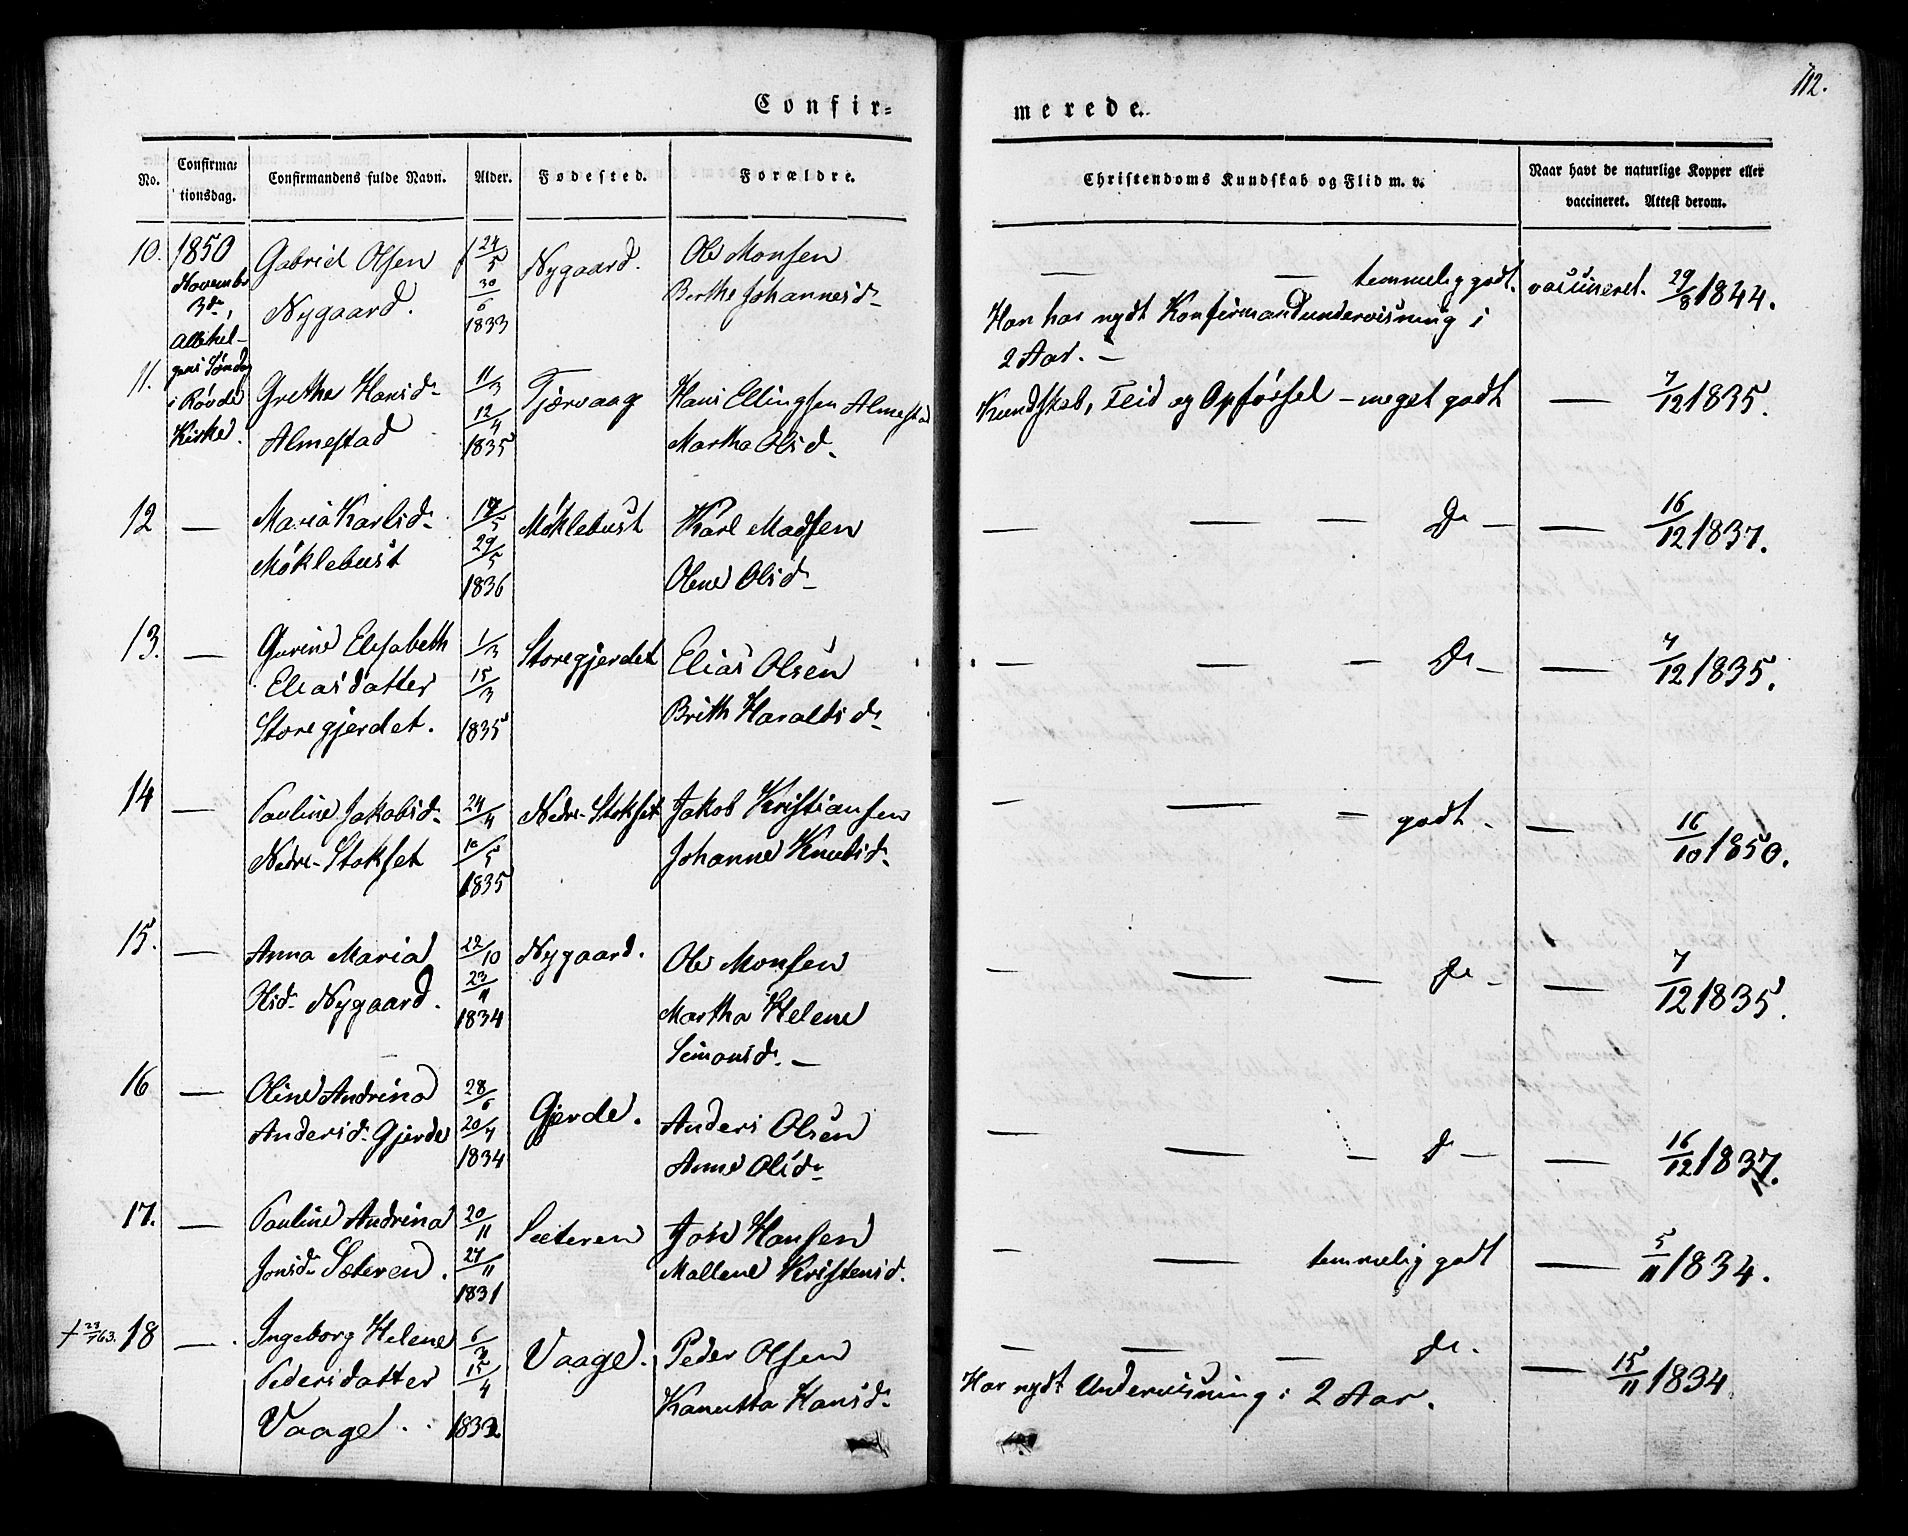 112.
Confir=
merede.
No.
Confirma=
tionsdag.
Confirmandens fulde Navn.
Alder.
Fødested.
Forældre.
Christendoms Kundskab og Flid m. v.
Naar havt de naturlige Kopper eller
vaccineret. Attest derom.
10. 1850 Gabriel Olsen 24/5 Nygaard. Ole Monsen — — temmelig godt. vaccineret. 29/8 1844.
Novembr
3die,
Allehel-
gens Søndag
i Røvde
Kirke.
Nygaard. 30/6 Berthe Johannesd-
1833
Han har nydt Konfirmandundervisning i
2 Aar. —
11. Grethe Hansd- 11/3 Tjærvaag Hans Ellingsen Almestad Kundskab, Flid og Opførsel - meget godt — 7/12 1835.
Almestad 12/4 Martha Olsd-
1835
12 — Maria Karlsd- 17/5 Møklebust Karl Madsen — — — Do — — 16/12 1837.
Møklebust 29/5 Olene Olsd-
1836
13. — Gurine Elisabeth 1/3 Storegjerdet Elias Olsen — — — Do — — 7/12 1835.
Eliasdatter 15/3 Brith Haraldsd-
Storegjerdet. 1835
14 — Pauline Jakobsd- 24/4 Nedre-Stokset Jakob Kristiansen — — — godt - — 16/10 1850.
Nedre-Stokset 10/5 Johanne Knudsd-
1835
15. — Anna Maria 22/10 Nygaard. Ole Monsen — — — Do - — 7/12 1835.
Olsd- Nygaard. 23/11 Martha Helene
1834 Simonsd. —
16 — Oline Andrina 28/6 Gjerde. Anders Olsen — — — Do — — 16/12 1837.
Andersd- Gjerde 20/7 Anne Olsd-
1834
17. — Pauline Andrina 20/11 Sæteren Jon Hansen — — temmelig godt — 5/11 1834.
Jonsd- Sæteren. 27/11 Mallene Kristensd.
1831
† 23/7 63. 18 — Ingeborg Helene 6/3 Vaage. Peder Olsen — — — Do. — 15/11 1834
Pedersdatter 15/4 Kanutta Hansd-
Vaage. 1832
Har nydt Undervisning i 2 Aar.